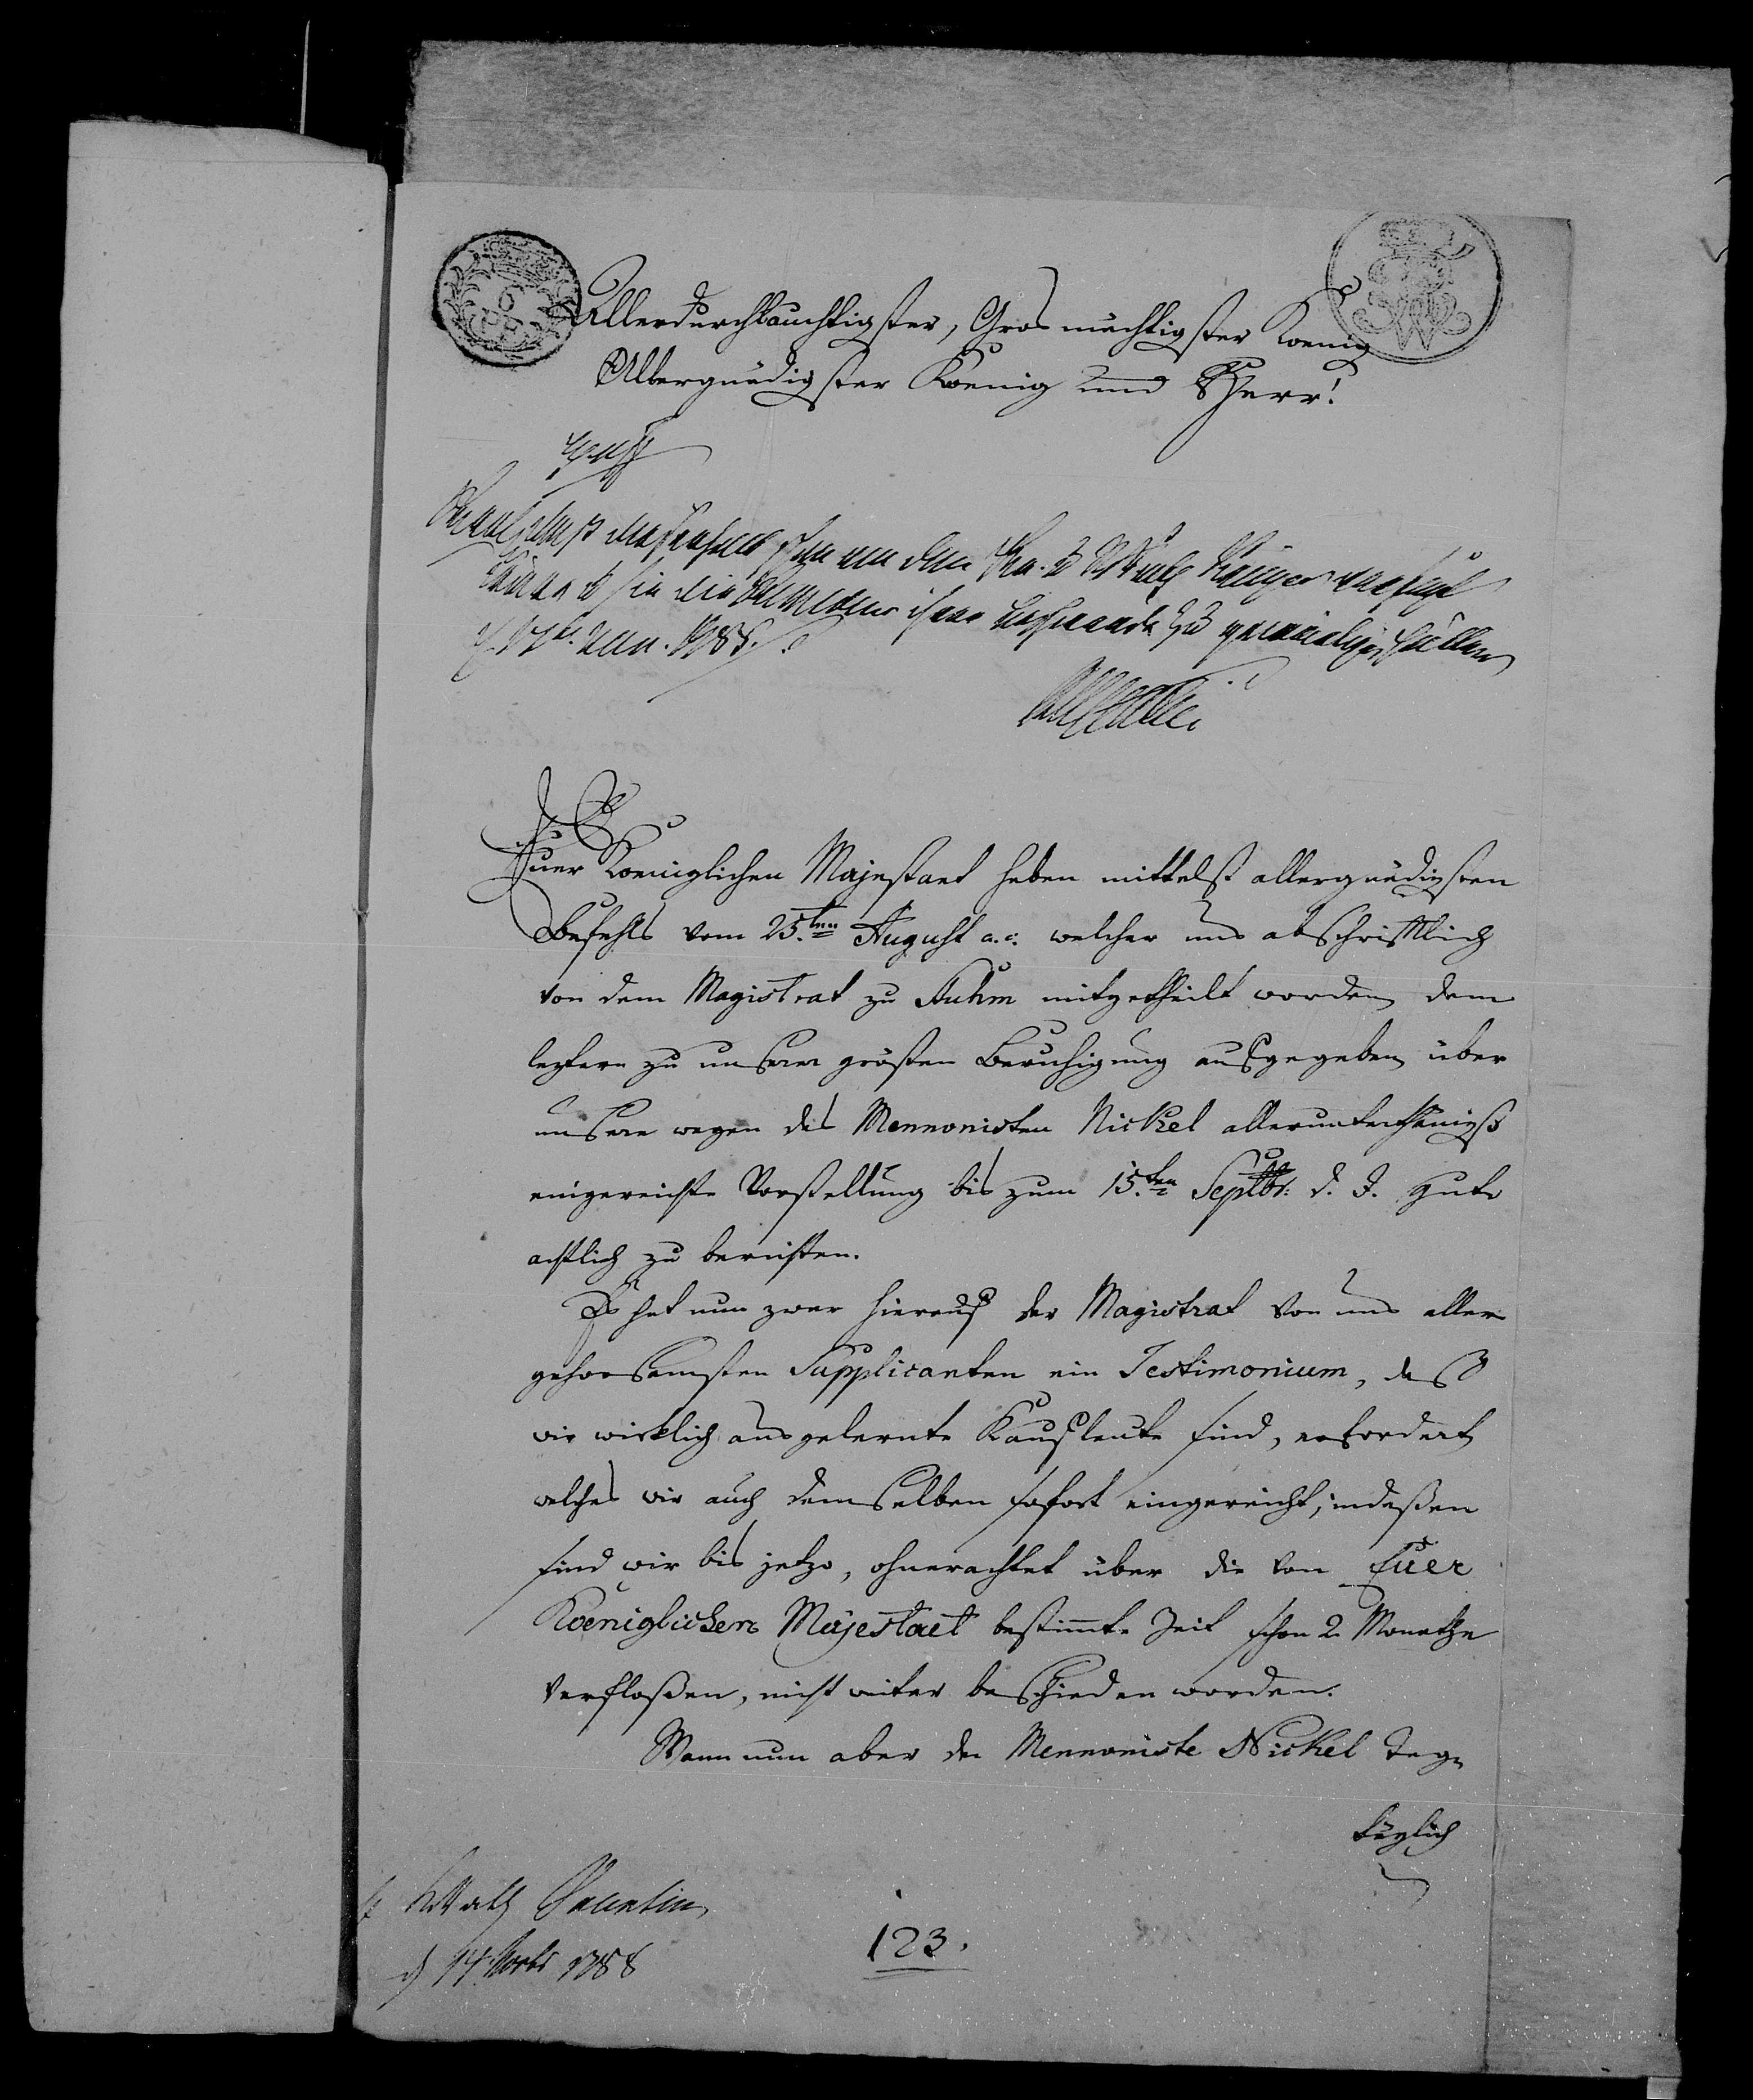 Allerdurchlauchtigster, Gros mächtigster Koenig
Allergnädigster Koenig und Herr!
17 Nov. 1788.
Euer Koeniglichen Majestaet haben mittelst allergnädigsten
Befehls vom 25.ten August a. c. welcher uns abschriftlich
von dem Magistrat zu Stuhm mitgetheilt worden, dem
leztern zu unserer grösten Beruhigung aufgegeben über
unsere wegen des Mennonisten Nickel allerunterthänigst
eingereichte Vorstellung bis zum 15.ten Septbr: d. J. gut
achtlich zu berichten.
Es hat nun zwar hierauf der Magistrat von uns aller
gehorsamsten Supplicanten ein Testimonium, daß
wir wirklich ausgelernte Kaufleute sind, erfordert
welches wir auch demselben sofort eingereicht, indeßen
sind wir bis jetzo, ohnerachtet über die von Euer
Koeniglichen Majestaet bestimte Zeit schon 2 Monathe
verfloßen, nicht weiter beschieden worden.
Wann nun aber der Mennoniste Nickel Tag
täglich
d 14 Novbr 1788
123.